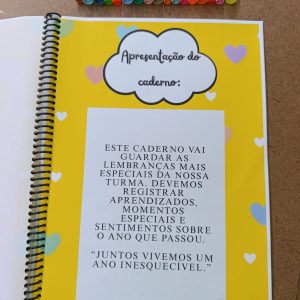 Apresentação do
caderno:
ESTE CADERNO VAI
GUARDAR AS
LEMBRANÇAS MAIS
ESPECIAIS DA NOSSA
TURMA. DEVEMOS
REGISTRAR
APRENDIZADOS,
MOMENTOS
ESPECIAIS E
SENTIMENTOS SOBRE
O ANO QUE PASSOU.
“JUNTOS VIVEMOS UM
ANO INESQUECÍVEL.”